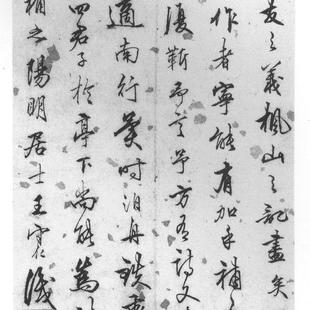 友之義楓山之記盡矣
作者寧能有加手補之
復靳予言予方有詩文
適南行異時泊舟鉄
四君子於亭下尚能為
補之陽明居士王守仁識